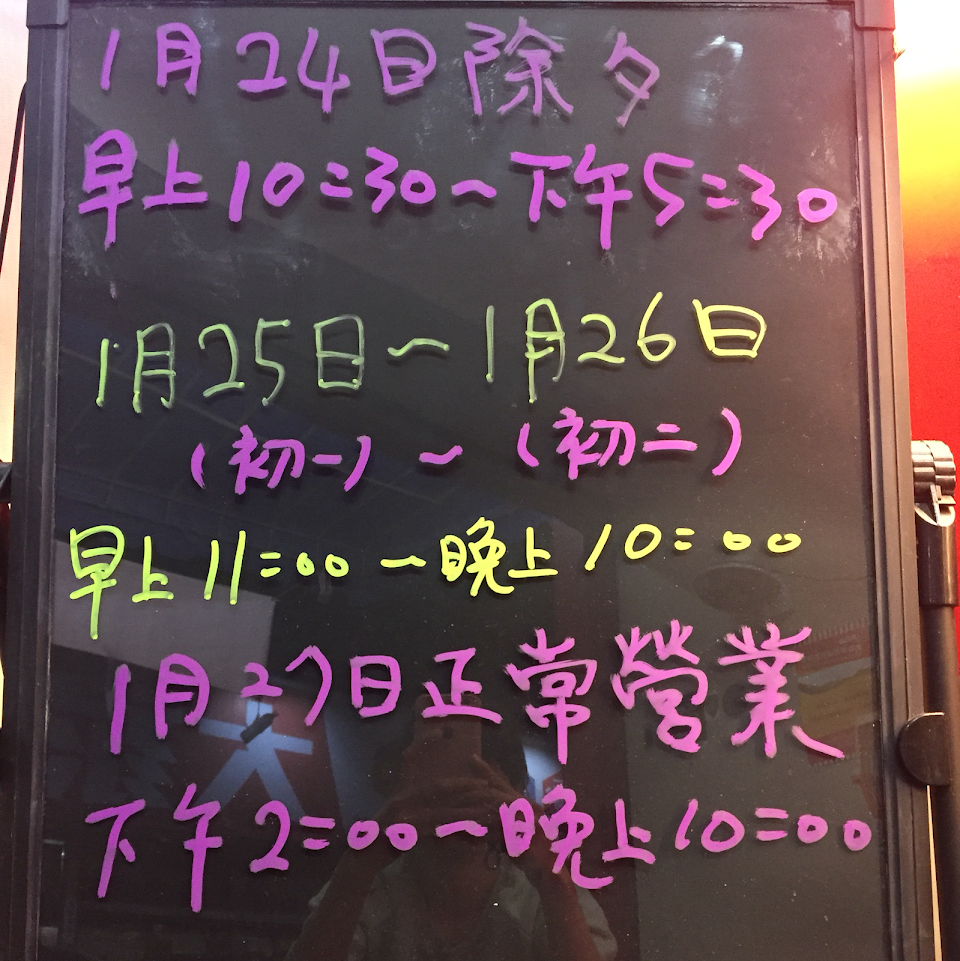 1月24日除夕
早上10:30~下午5:30
1月25日~1月26日
(初一)~(初二)
早上11:00~晚上10:00
1月27日正常營業
下午2:00~晚上10:00